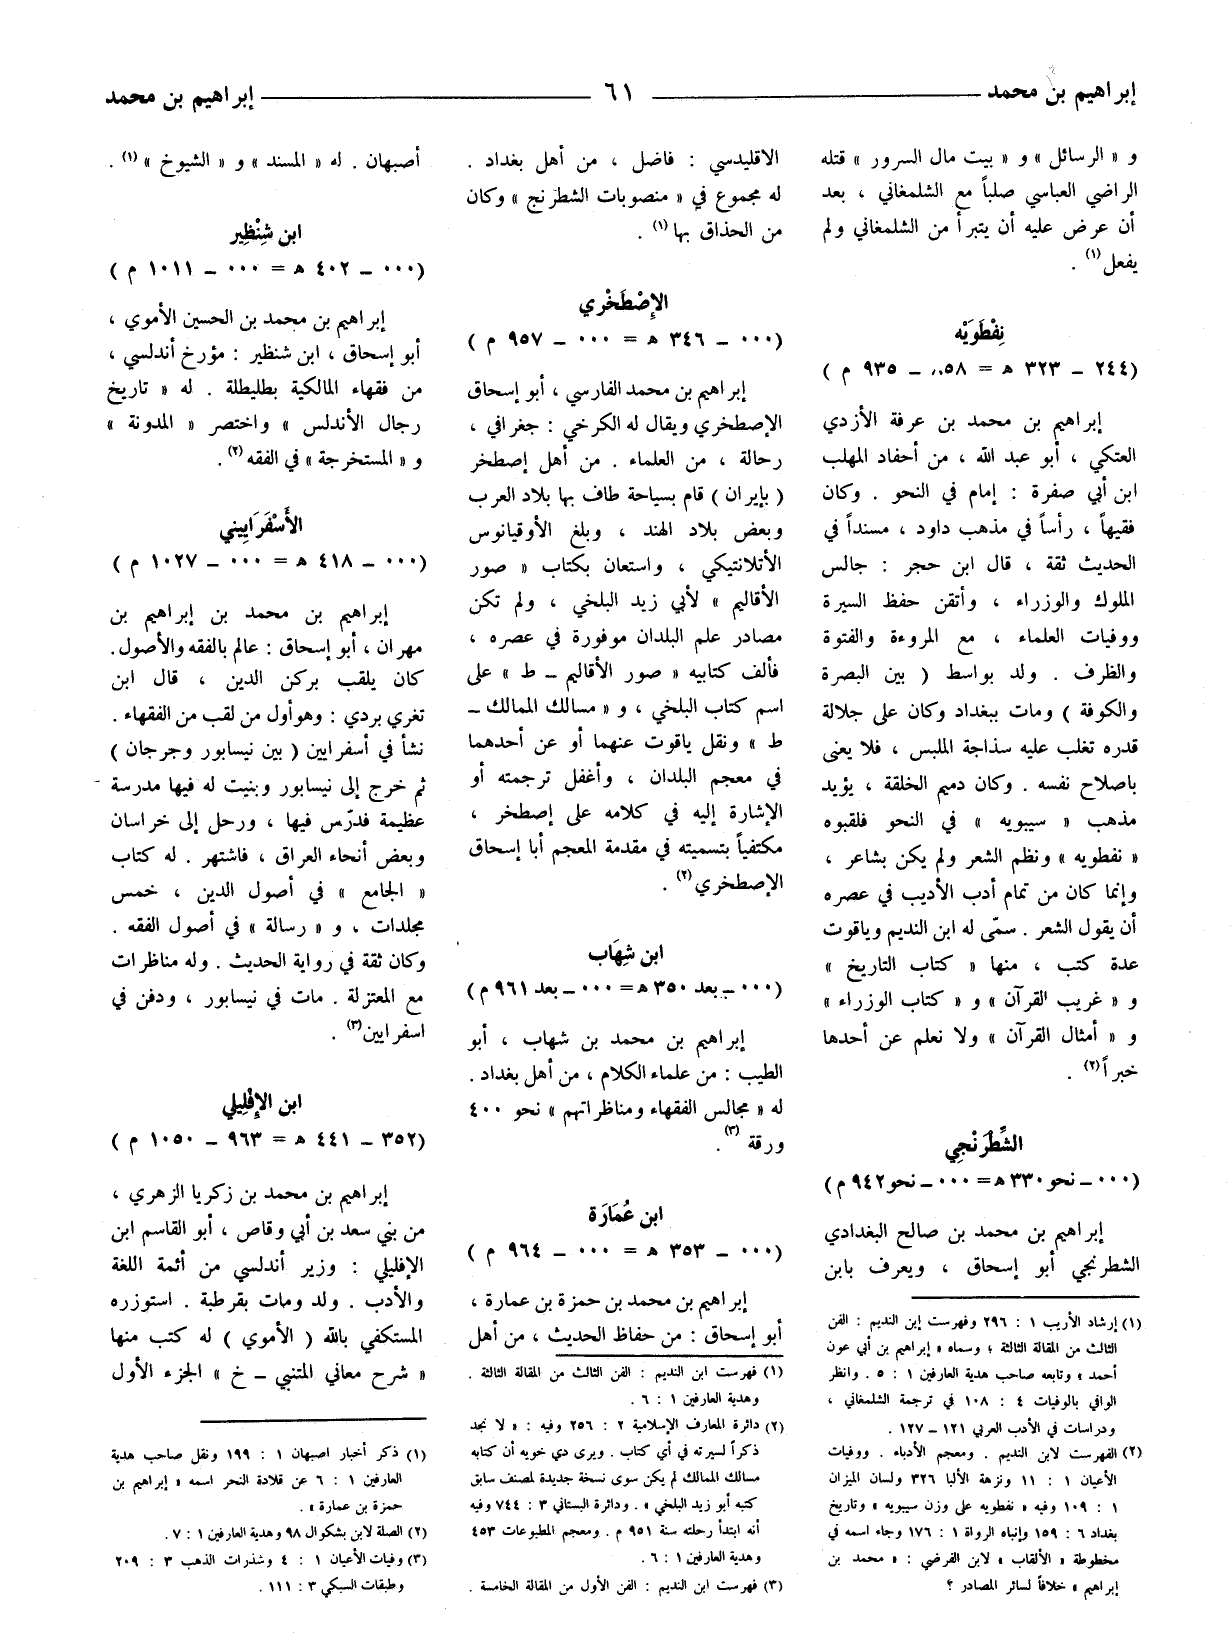 إبراهيم بن محمد ٦١ إبراهيم بن محمد
و « الرسائل » و « بيت مال السرور » قتله
الراضي العباسي صلباً مع الشلمغاني ، بعد
أن عرض عليه أن يتبرأ من الشلمغاني ولم
يفعل (١) .
نِفْطَوَيْه
(٢٤٤ – ٣٢٣ ه = ٨٥٨ – ٩٣٥ م )
إبراهيم بن محمد بن عرفة الأزدي
العتكي ، أبو عبد الله ، من أحفاد المهلب
ابن أبي صفرة : إمام في النحو . وكان
فقيهاً ، رأساً في مذهب داود ، مسنداً في
الحديث ثقة ، قال ابن حجر : جالس
الملوك والوزراء ، وأتقن حفظ السيرة
ووفيات العلماء ، مع المروءة والفتوة
والظرف . ولد بواسط ( بين البصرة
والكوفة ) ومات ببغداد وكان على جلالة
قدره تغلب عليه سذاجة الملبس ، فلا يعنى
باصلاح نفسه . وكان دميم الخلقة ، يؤيد
مذهب « سيبويه » في النحو فلقبوه
« نفطويه » ونظم الشعر ولم يكن بشاعر ،
وإنما كان من تمام أدب الأديب في عصره
أن يقول الشعر . سمّى له ابن النديم وياقوت
عدة كتب ، منها « كتاب التاريخ »
و « غريب القرآن » و « كتاب الوزراء »
و « أمثال القرآن » ولا نعلم عن أحدها
خبراً (٢) .
الشِّطْرَنْجي
(٠٠٠ – نحو ٣٣٠ ه = ٠٠٠ – نحو ٩٤٢ م )
إبراهيم بن محمد بن صالح البغدادي
الشطرنجي أبو إسحاق ، ويعرف بابن
(١) إرشاد الأريب ١ : ٢٩٦ وفهرست إبن النديم : الفن
الثالث من المقالة الثالثة ؛ وسماه « إبراهيم بن أبي عون
أحمد » وتابعه صاحب هدية العارفين ١ : ٥ . وانظر
الوافي بالوفيات ٤ : ١٠٨ في ترجمة الشلمغاني ،
ودراسات في الأدب العربي ١٢١ – ١٢٧ .
(٢) الفهرست لابن النديم . ومعجم الأدباء . ووفيات
الأعيان ١ : ١١ ونزهة الألبا ٣٢٦ ولسان الميزان
١ : ١٠٩ وفيه « نفطويه على وزن سيبويه » وتاريخ
بغداد ٦ : ١٥٩ وإنباه الرواة ١ : ١٧٦ وجاء اسمه في
مخطوطة « الألقاب » لابن الفرضي : « محمد بن
إبراهيم » خلافاً لسائر المصادر ؟
الاقليدسي : فاضل ، من أهل بغداد .
له مجموع في « منصوبات الشطرنج » وكان
من الحذاق بها (١) .
الإصْطَخْري
(٠٠٠ – ٣٤٦ ه = ٠٠٠ – ٩٥٧ م )
إبراهيم بن محمد الفارسي ، أبو إسحاق
الإصطخري ويقال له الكرخي : جغرافي ،
رحالة ، من العلماء . من أهل إصطخر
( بإيران ) قام بسياحة طاف بها بلاد العرب
وبعض بلاد الهند ، وبلغ الأوقيانوس
الأتلانتيكي ، واستعان بكتاب « صور
الأقاليم » لأبي زيد البلخي ، ولم تكن
مصادر علم البلدان موفورة في عصره ،
فألف كتابيه « صور الأقاليم – ط » على
اسم كتاب البلخي ، و « مسالك الممالك –
ط » ونقل ياقوت عنهما أو عن أحدهما
في معجم البلدان ، وأغفل ترجمته أو
الإشارة إليه في كلامه على إصطخر ،
مكتفياً بتسميته في مقدمة المعجم أبا إسحاق
الإصطخري (٢) .
ابن شِهَاب
(٠٠٠ – بعد ٣٥٠ ه = ٠٠٠ – بعد ٩٦١ م )
إبراهيم بن محمد بن شهاب ، أبو
الطيب : من علماء الكلام ، من أهل بغداد .
له « مجالس الفقهاء ومناظراتهم » نحو ٤٠٠
ورقة (٣) .
ابن عُمَارَة
(٠٠٠ – ٣٥٣ ه = ٠٠٠ – ٩٦٤ م )
إبراهيم بن محمد بن حمزة بن عمارة ،
أبو إسحاق : من حفاظ الحديث ، من أهل
(١) فهرست ابن النديم : الفن الثالث من المقالة الثالثة .
وهدية العارفين ١ : ٦ .
(٢) دائرة المعارف الإسلامية ٢ : ٢٥٦ وفيه : « لا نجد
ذكراً لسيرته في أي كتاب . ويرى دي خويه أن كتابه
مسالك الممالك لم يكن سوى نسخة جديدة لمصنف سابق
كتبه أبو زيد البلخي » . ودائرة البستاني ٣ : ٧٤٤ وفيه
أنه ابتدأ رحلته سنة ٩٥١ م . ومعجم المطبوعات ٤٥٣
وهدية العارفين ١ : ٦ .
(٣) فهرست ابن النديم : الفن الأول من المقالة الخامسة .
أصبهان . له « المسند » و « الشيوخ » (١) .
ابن شِنْظِير
(٠٠٠ – ٤٠٢ ه = ٠٠٠ – ١٠١١ م )
إبراهيم بن محمد بن الحسين الأموي ،
أبو إسحاق ، ابن شنظير : مؤرخ أندلسي ،
من فقهاء المالكية بطليطلة . له « تاريخ
رجال الأندلس » واختصر « المدونة »
و « المستخرجة » في الفقه (٢) .
الأَسْفَرَاييني
(٠٠٠ – ٤١٨ ه = ٠٠٠ – ١٠٢٧ م )
إبراهيم بن محمد بن إبراهيم بن
مهران ، أبو إسحاق : عالم بالفقه والأصول .
كان يلقب بركن الدين ، قال ابن
تغري بردي : وهو أول من لقب من الفقهاء .
نشأ في أسفرايين ( بين نيسابور وجرجان )
ثم خرج إلى نيسابور وبنيت له فيها مدرسة
عظيمة فدرّس فيها ، ورحل إلى خراسان
وبعض أنحاء العراق ، فاشتهر . له كتاب
« الجامع » في أصول الدين ، خمس
مجلدات ، و « رسالة » في أصول الفقه .
وكان ثقة في رواية الحديث . وله مناظرات
مع المعتزلة . مات في نيسابور ، ودفن في
اسفرايين (٣) .
ابن الإفْلِيلي
(٣٥٢ – ٤٤١ ه = ٩٦٣ – ١٠٥٠ م )
إبراهيم بن محمد بن زكريا الزهري ،
من بني سعد بن أبي وقاص ، أبو القاسم ابن
الإفليلي : وزير أندلسي من أئمة اللغة
والأدب . ولد ومات بقرطبة . استوزره
المستكفي بالله ( الأموي ) له كتب منها
« شرح معاني المتنبي – خ » الجزء الأول
(١) ذكر أخبار اصبهان ١ : ١٩٩ ونقل صاحب هدية
العارفين ١ : ٦ عن قلادة النحر اسمه « إبراهيم بن
حمزة بن عمارة » .
(٢) الصلة لابن بشكوال ٩٨ وهدية العارفين ١ : ٧ .
(٣) وفيات الأعيان ١ : ٤ وشذرات الذهب ٣ : ٢٠٩
وطبقات السبكي ٣ : ١١١ .